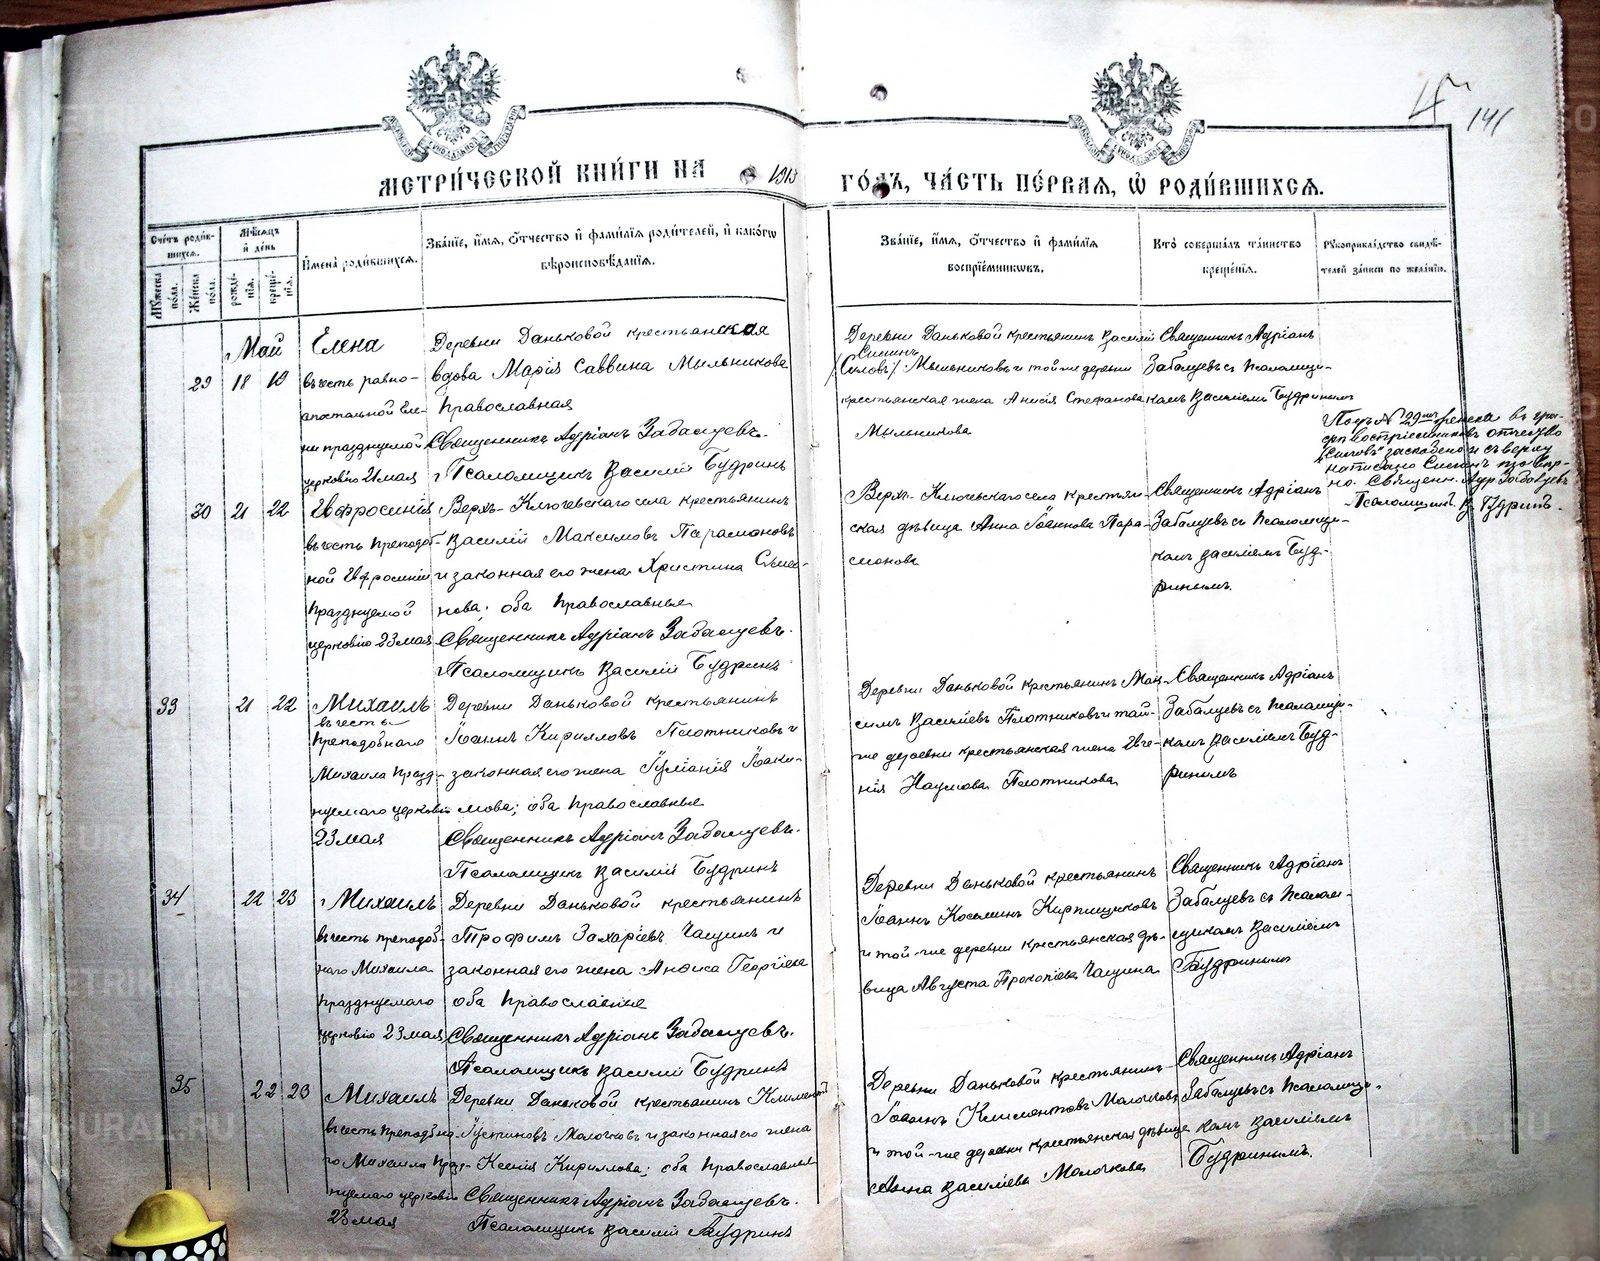 141
МЕТРИЧЕСКОЙ КНИГИ НА 1913 ГОДЪ, ЧАСТЬ ПЕРВАЯ, Ѽ РОДИВШИХСЯ.
Счетъ родившихся.
Мужеска пола.
Женска пола.
Мѣсяцъ и день
рожденія.
крещенія.
Имена родившихся.
Званіе, имя, отчество и фамилія родителей, и какогѡ
вѣроисповѣданія.
Званіе, имя, отчество и фамилія
воспріемниковъ.
Кто совершалъ таинство
крещенія.
Рукоприкладство свидѣ-
телей записи по желанію.
Май
29 18 19
Елена
въ честь равно-
апостольной Еле-
ны празднуемой
церковію 21 мая
Деревни Даньковой крестьянская
вдова Марія Саввина Мыльникова
Православная
Священникъ Адріанъ Забалуевъ.
Псаломщикъ Василій Будринъ
Деревни Даньковой крестьянинъ Василій
Симинъ
/Силовъ/ Мыльниковъ и той же деревни
крестьянская жена Анисія Стефанова
Мыльникова
Священникъ Адріанъ
Забалуевъ съ Псаломщи-
комъ Василіемъ Будринымъ
Подъ № 29
Псаломщикъ В. Будринъ.
30 21 22
Евфросинія
въ честь преподоб-
ной Евфросиніи
празднуемой
церковію 23 мая
Верхъ-Ключевскаго села крестьянинъ
Василій Максимовъ Парамоновъ
и законная его жена Христина Симео-
нова; оба Православные
Священникъ Адріанъ Забалуевъ.
Псаломщикъ Василій Будринъ
Верхъ-Ключевскаго села крестьян-
ская дѣвица Анна Іоаннова Пара-
монова
Священникъ Адріанъ
Забалуевъ съ Псаломщи-
комъ Василіемъ Буд-
ринымъ.
33 21 22
Михаилъ
въ честь
преподобнаго
Михаила празд-
нуемаго церковію
23 мая
Деревни Даньковой крестьянинъ
Іоаннъ Кирилловъ Плотниковъ и
законная его жена Іуліанія Іоаки-
мова; оба Православные
Священникъ Адріанъ Забалуевъ.
Псаломщикъ Василій Будринъ
Деревни Даньковой крестьянинъ Мак-
симъ Васильевъ Плотниковъ и той-
же деревни крестьянская жена Евге-
нія Наумова Плотникова
Священникъ Адріанъ
Забалуевъ съ Псаломщи-
комъ Василіемъ Буд-
ринымъ
34 22 23
Михаилъ
въ честь преподоб-
наго Михаила
празднуемаго
церковію 23 мая
Деревни Даньковой крестьянинъ
Трофимъ Захаріевъ Чащинъ и
законная его жена Анѳиса Георгіева
оба Православные
Священникъ Адріанъ Забалуевъ.
Псаломщикъ Василій Будринъ
Деревни Даньковой крестьянинъ
Іоаннъ Косминъ Кирпищиковъ
и той-же деревни крестьянская дѣ-
вица Августа Прокопіева Чащина
Священникъ Адріанъ
Забалуевъ съ Псалом-
щикомъ Василіемъ
Будринымъ
35 22 23
Михаилъ
въ честь преподобна-
го Михаила праз-
нуемаго церковію
23 мая
Деревни Даньковой крестьянинъ Климентъ
Іустиновъ Молочковъ и законная его жена
Ксенія Кириллова; оба Православные
Священникъ Адріанъ Забалуевъ.
Псаломщикъ Василій Будринъ
Деревни Даньковой крестьянинъ
Іоаннъ Климентовъ Молочковъ
и той-же деревни крестьянская дѣвица
Анна Василіева Молочкова
Священникъ Адріанъ
Забалуевъ съ Псаломщи-
комъ Василіемъ
Будринымъ.